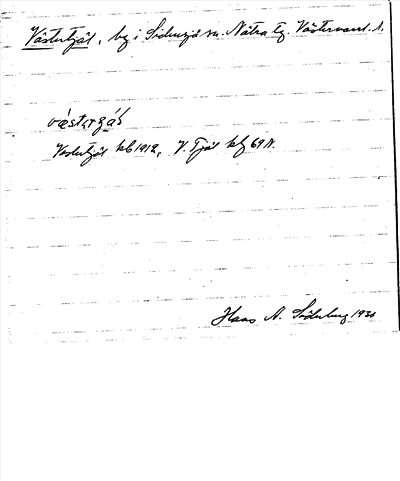 Västertjäl, by i Sidensjö sn. Nätra tg. Västernorrl. l.
västɩrʒás
Vestertjäl kb 1912, V. Tjäl kfg 69 N.
Hans A. Söderberg 1930